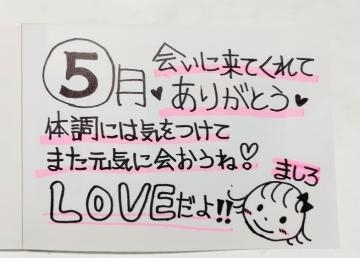 ⑤月 会いに来てくれて
♥ありがとう♥
体調には気をつけて
また元気に会おうね♡
LOVEだよ!!
ましろ